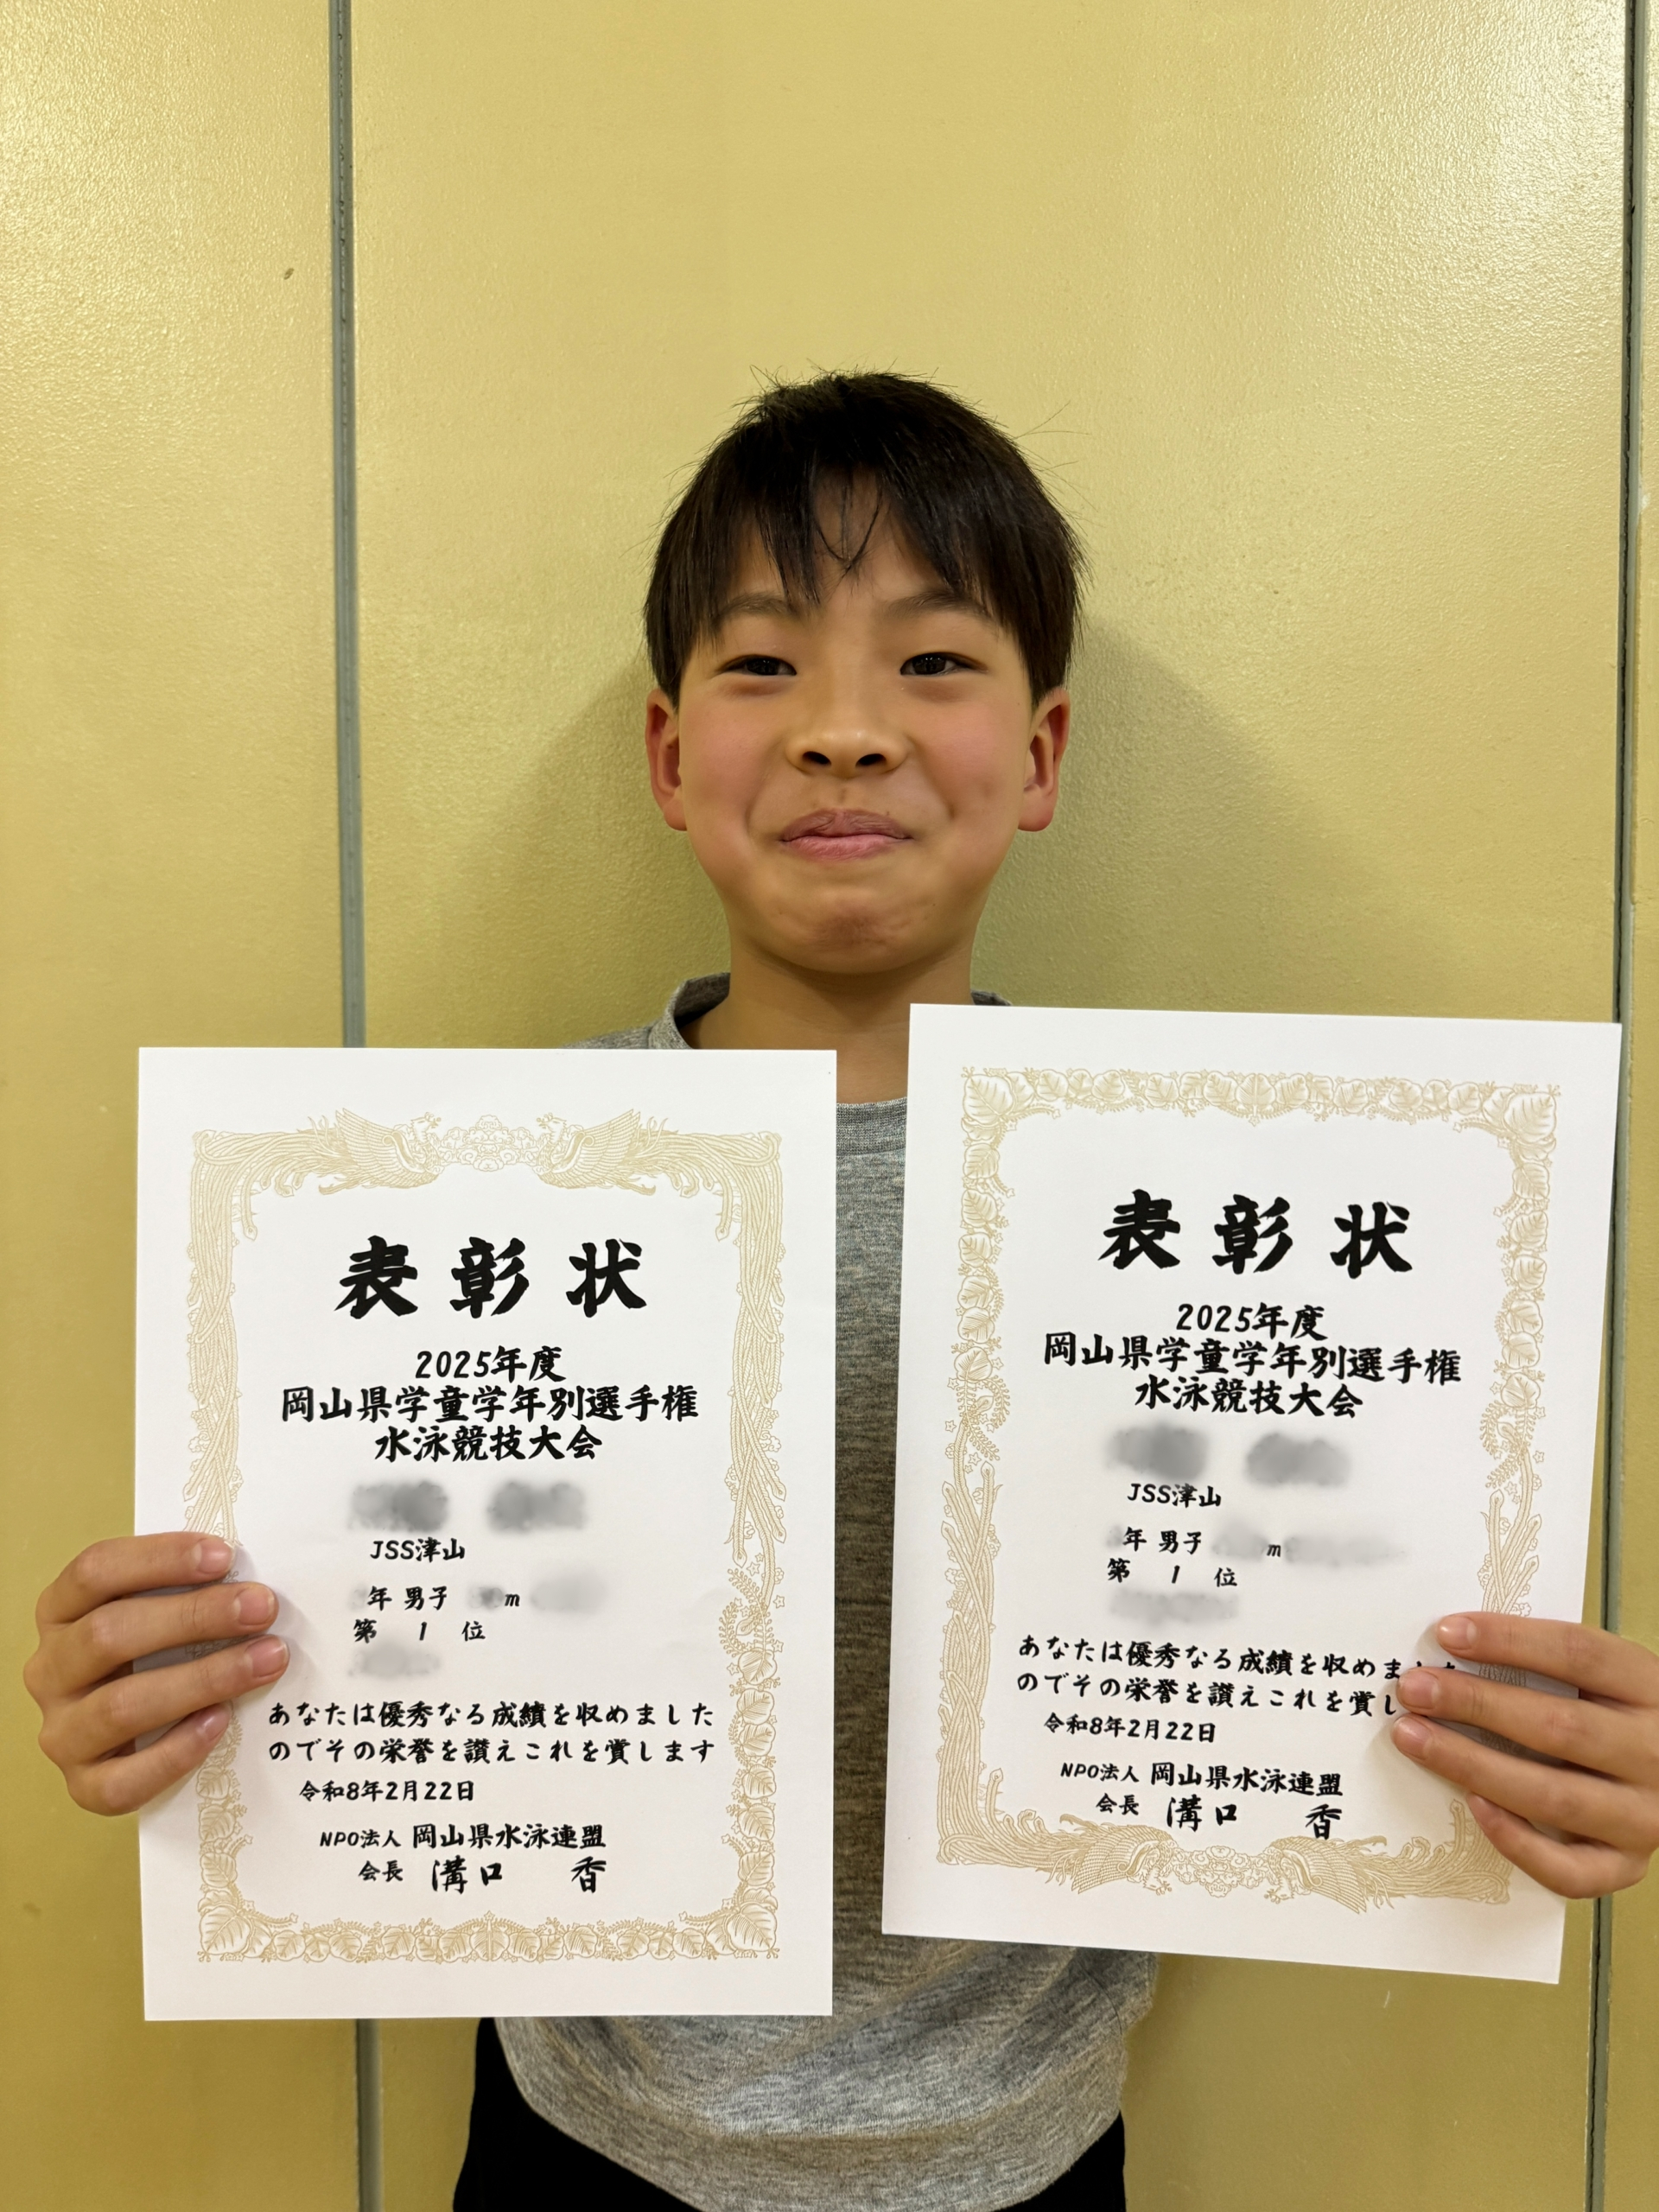 表彰状
2025年度
岡山県学童学年別選手権
水泳競技大会
JSS津山
年 男子 m
第 1 位
あなたは優秀なる成績を収めました
のでその栄誉を讃えこれを賞します
令和8年2月22日
NPO法人 岡山県水泳連盟
会長 溝口 香
表彰状
2025年度
岡山県学童学年別選手権
水泳競技大会
JSS津山
年 男子 m
第 1 位
あなたは優秀なる成績を収めま
のでその栄誉を讃えこれを賞し
令和8年2月22日
NPO法人 岡山県水泳連盟
会長 溝口 香